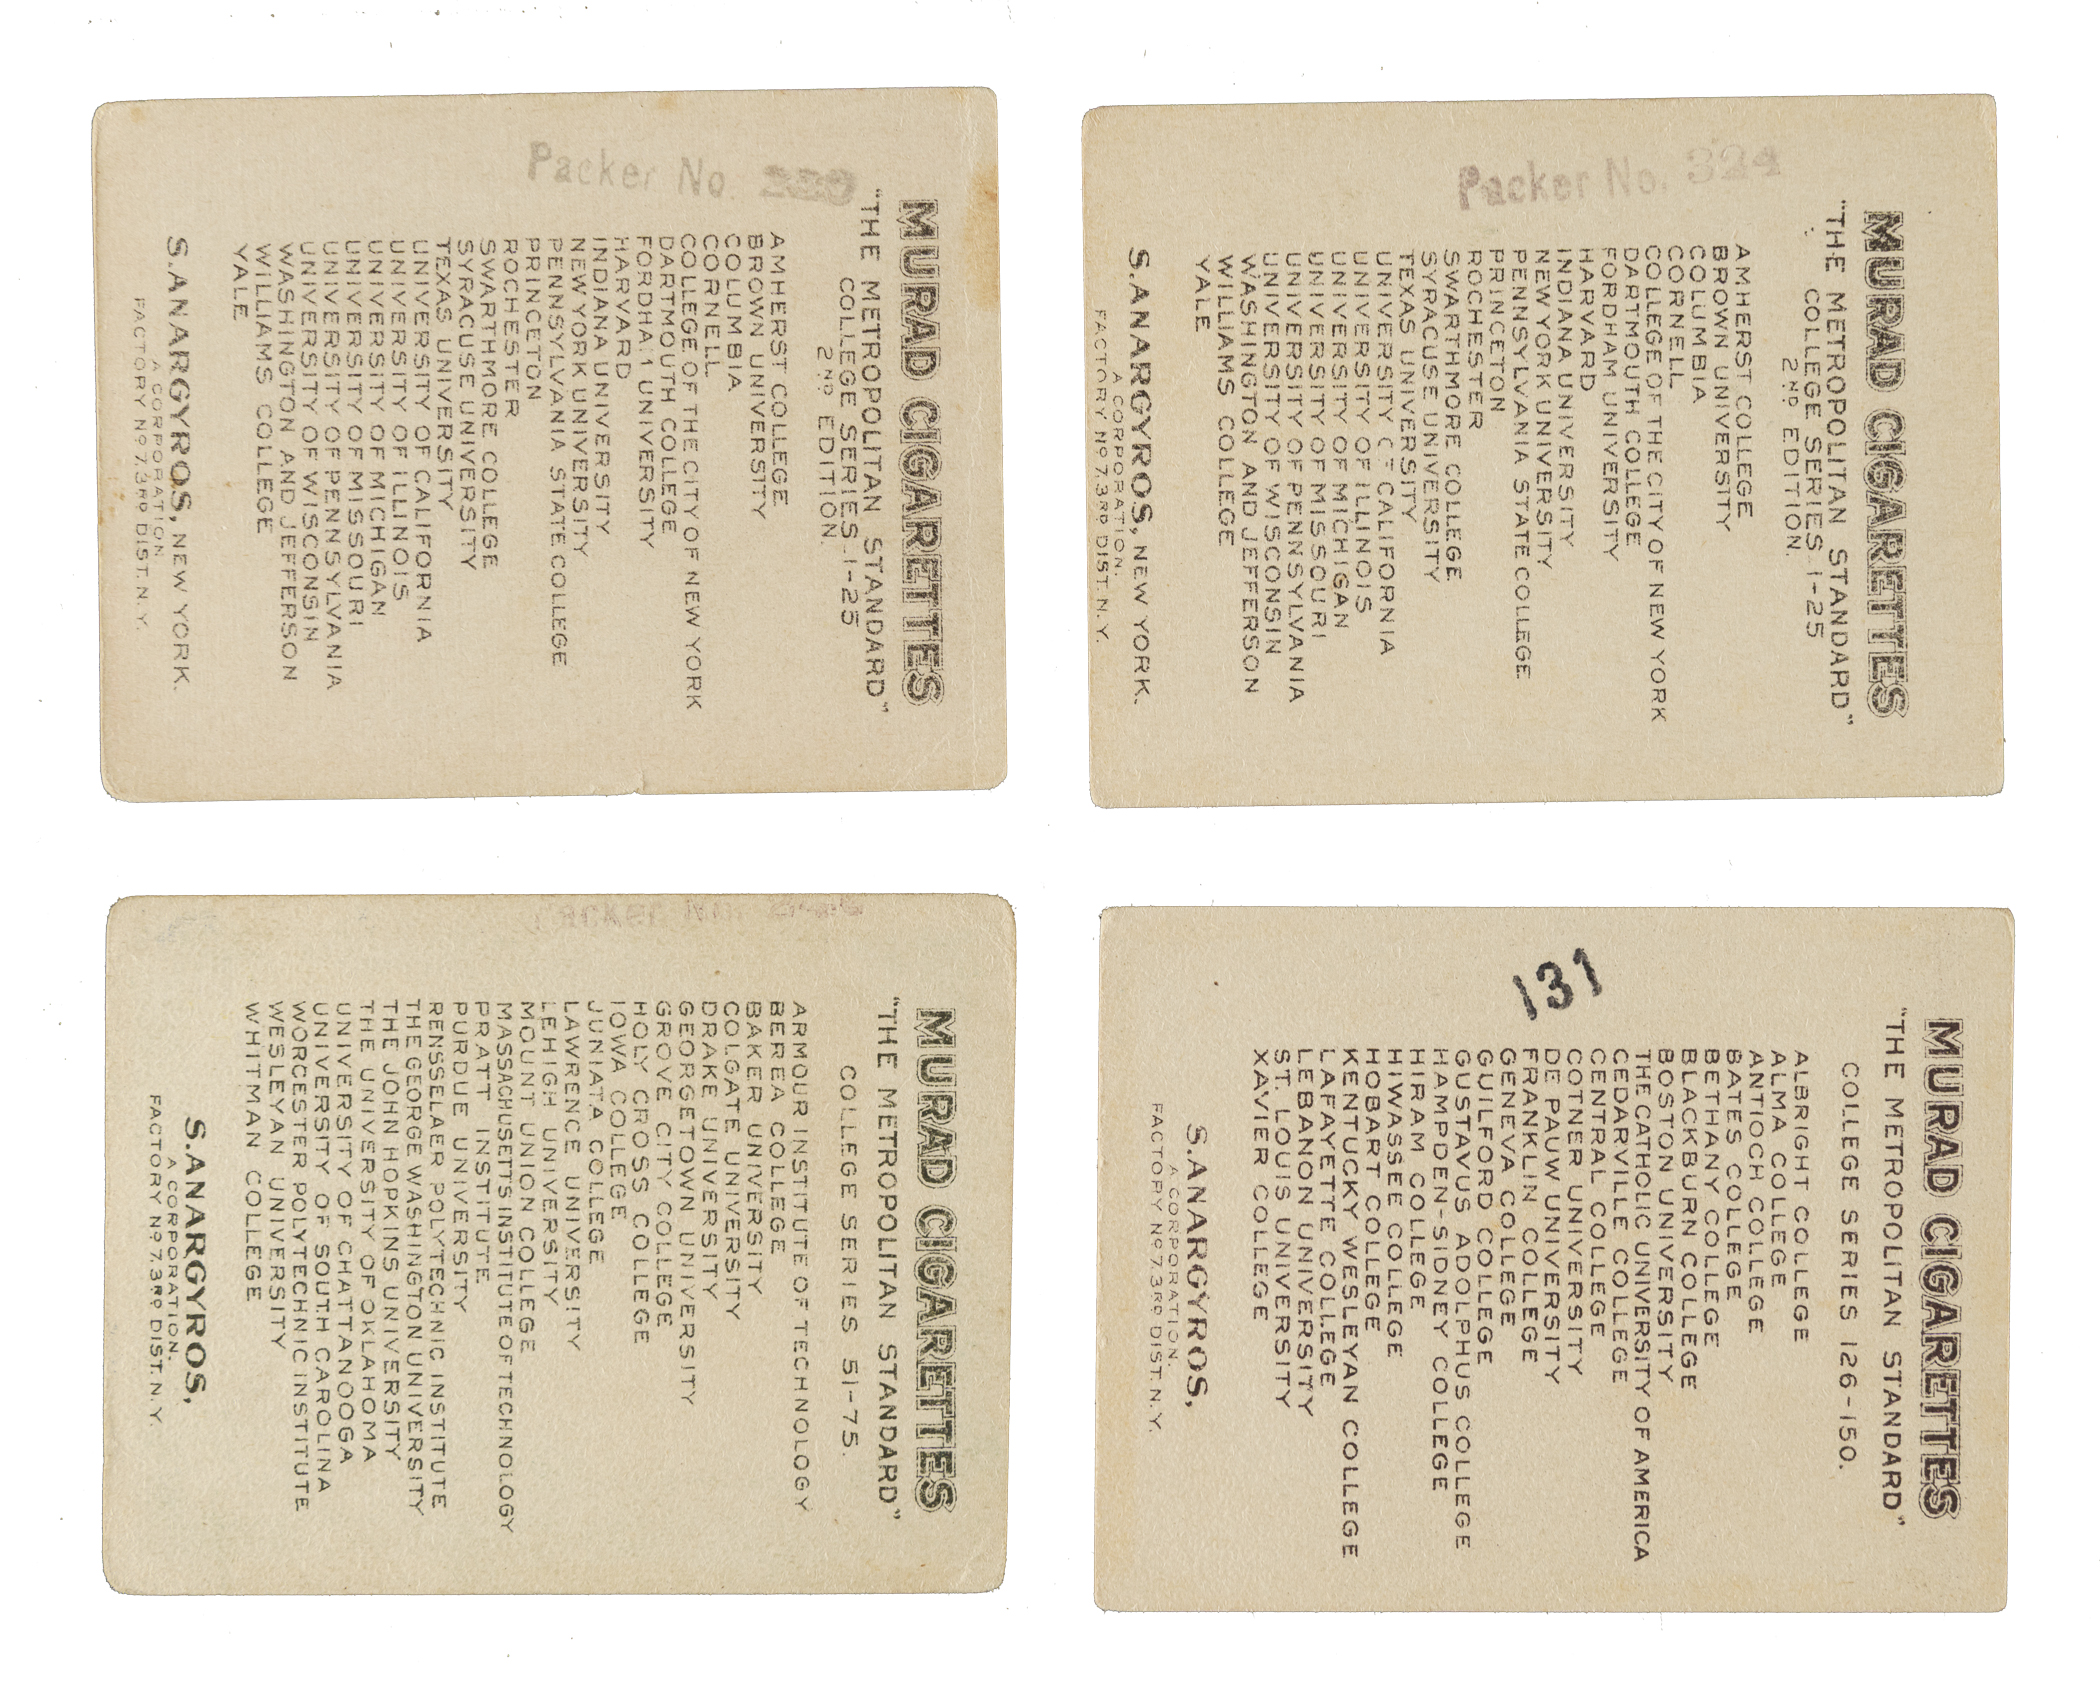 Packer No.
MURAD CIGARETTES
"THE METROPOLITAN STANDARD"
COLLEGE SERIES 1-25
2ND EDITION.
AMHERST COLLEGE
BROWN UNIVERSITY
COLUMBIA
CORNELL
COLLEGE OF THE CITY OF NEW YORK
DARTMOUTH COLLEGE
FORDHAM UNIVERSITY
HARVARD
INDIANA UNIVERSITY
NEW YORK UNIVERSITY
PENNSYLVANIA STATE COLLEGE
PRINCETON
ROCHESTER
SWARTHMORE COLLEGE
SYRACUSE UNIVERSITY
TEXAS UNIVERSITY
UNIVERSITY OF CALIFORNIA
UNIVERSITY OF ILLINOIS
UNIVERSITY OF MICHIGAN
UNIVERSITY OF MISSOURI
UNIVERSITY OF PENNSYLVANIA
UNIVERSITY OF WISCONSIN
WASHINGTON AND JEFFERSON
WILLIAMS COLLEGE
YALE
S. ANARGYROS, NEW YORK.
A CORPORATION.
FACTORY No 7, 3RD DIST. N.Y.
Packer No. 324
MURAD CIGARETTES
"THE METROPOLITAN STANDARD"
COLLEGE SERIES 1-25
2ND EDITION.
AMHERST COLLEGE
BROWN UNIVERSITY
COLUMBIA
CORNELL
COLLEGE OF THE CITY OF NEW YORK
DARTMOUTH COLLEGE
FORDHAM UNIVERSITY
HARVARD
INDIANA UNIVERSITY
NEW YORK UNIVERSITY
PENNSYLVANIA STATE COLLEGE
PRINCETON
ROCHESTER
SWARTHMORE COLLEGE
SYRACUSE UNIVERSITY
TEXAS UNIVERSITY
UNIVERSITY OF CALIFORNIA
UNIVERSITY OF ILLINOIS
UNIVERSITY OF MICHIGAN
UNIVERSITY OF MISSOURI
UNIVERSITY OF PENNSYLVANIA
UNIVERSITY OF WISCONSIN
WASHINGTON AND JEFFERSON
WILLIAMS COLLEGE
YALE
S. ANARGYROS, NEW YORK.
A CORPORATION.
FACTORY No 7, 3RD DIST. N.Y.
Packer No.
MURAD CIGARETTES
"THE METROPOLITAN STANDARD"
COLLEGE SERIES 51-75.
ARMOUR INSTITUTE OF TECHNOLOGY
BEREA COLLEGE
BAKER UNIVERSITY
COLGATE UNIVERSITY
DRAKE UNIVERSITY
GEORGETOWN UNIVERSITY
GROVE CITY COLLEGE
HOLY CROSS COLLEGE
IOWA COLLEGE
JUNIATA COLLEGE
LAWRENCE UNIVERSITY
LEHIGH UNIVERSITY
MOUNT UNION COLLEGE
MASSACHUSETTS INSTITUTE OF TECHNOLOGY
PRATT INSTITUTE
PURDUE UNIVERSITY
RENSSELAER POLYTECHNIC INSTITUTE
THE GEORGE WASHINGTON UNIVERSITY
THE JOHN HOPKINS UNIVERSITY
THE UNIVERSITY OF OKLAHOMA
UNIVERSITY OF CHATTANOOGA
UNIVERSITY OF SOUTH CAROLINA
WORCESTER POLYTECHNIC INSTITUTE
WESLEYAN UNIVERSITY
WHITMAN COLLEGE
S. ANARGYROS,
A CORPORATION.
FACTORY No 7, 3RD DIST. N.Y.
131
MURAD CIGARETTES
"THE METROPOLITAN STANDARD"
COLLEGE SERIES 126-150.
ALBRIGHT COLLEGE
ALMA COLLEGE
ANTIOCH COLLEGE
BATES COLLEGE
BETHANY COLLEGE
BLACKBURN COLLEGE
BOSTON UNIVERSITY
THE CATHOLIC UNIVERSITY OF AMERICA
CEDARVILLE COLLEGE
CENTRAL COLLEGE
COTNER UNIVERSITY
DE PAUW UNIVERSITY
FRANKLIN COLLEGE
GENEVA COLLEGE
GUILFORD COLLEGE
GUSTAVUS ADOLPHUS COLLEGE
HAMPDEN-SIDNEY COLLEGE
HIRAM COLLEGE
HIWASSEE COLLEGE
HOBART COLLEGE
KENTUCKY WESLEYAN COLLEGE
LAFAYETTE COLLEGE
LEBANON UNIVERSITY
ST. LOUIS UNIVERSITY
XAVIER COLLEGE
S. ANARGYROS,
A CORPORATION.
FACTORY No 7, 3RD DIST. N.Y.